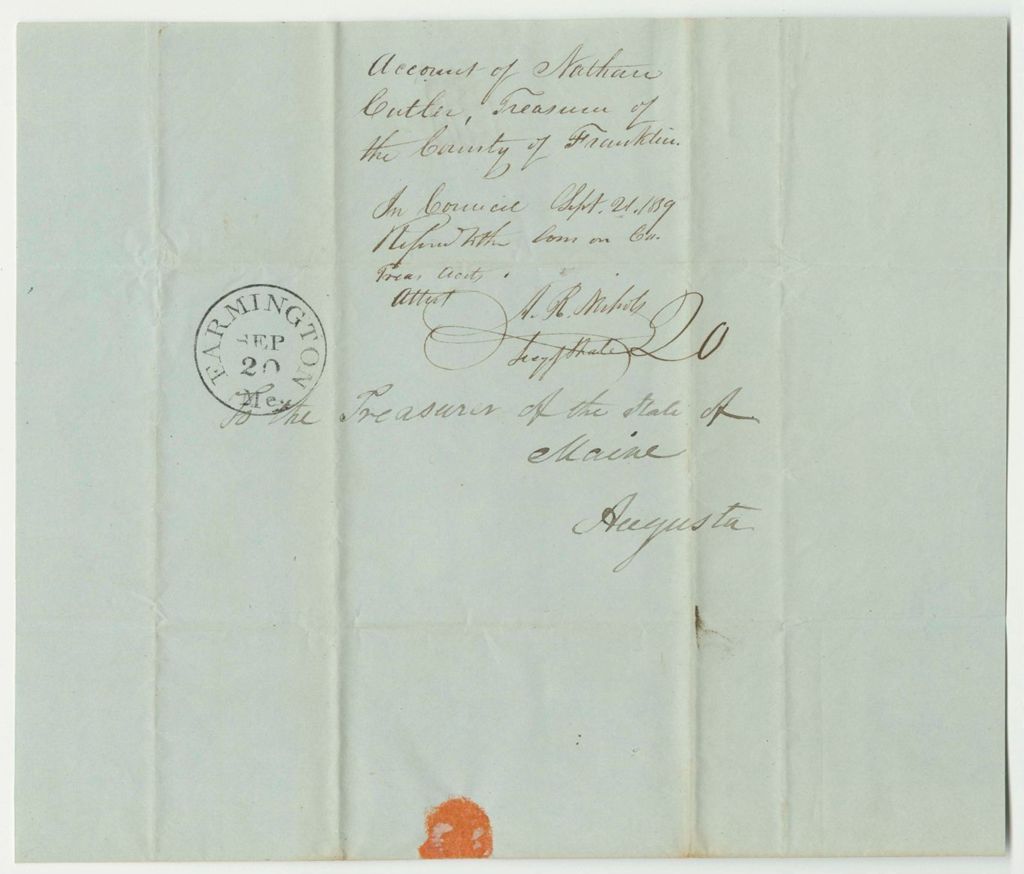 Account of Nathan
Cutler, Treasurer of
the County of Franklin.
In Council Sept. 21. 1839
Referred to the Com on Co.
Treas Accts.
Attest
A. R. Nichols
Secy of State
20
FARMINGTON
SEP
20
Me.
To the Treasurer of the State of
Maine
Augusta